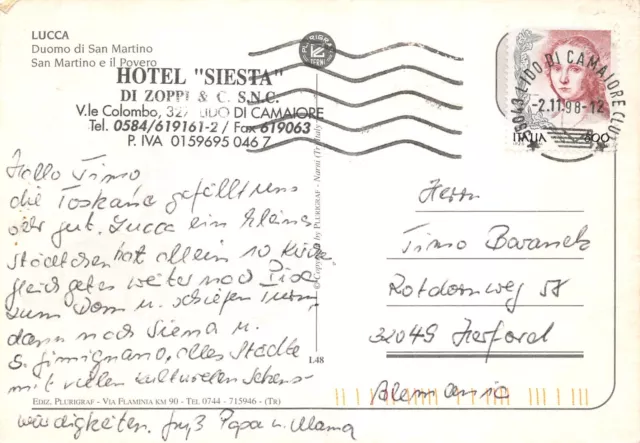 LUCCA
Duomo di San Martino
San Martino e il Povero
HOTEL "SIESTA"
DI ZOPPI & C. S.N.C.
V.le Colombo, 327 LIDO DI CAMAIORE
Tel. 0584/619161-2 / Fax 619063
P. IVA 0159695 046 7
PLURIGRAF
TERNI
55043 LIDO DI CAMAIORE (LU)
-2.11.98-12
ITALIA 800
Hallo Timo
die Toskana gefällt uns
sehr gut. Lucca ein kleines
Städtchen hat allein 10 Kirchen
gleich geht es weiter nach Pisa
zum Dom u. schiefen Turm,
dann nach Siena u.
S. Gimignano, alles Städte
mit vielen kulturellen Sehens-
würdigkeiten. Gruß Papa u. Mama
© Copyright by PLURIGRAF - Narni (Tr) Italy
L48
Herrn
Timo
Rotdornweg 58
32049 Herford
Alemania
EDIZ. PLURIGRAF - VIA FLAMINIA KM 90 - TEL 0744 - 715946 - (TR)